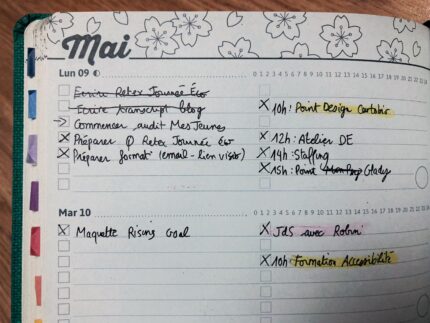 Mai
Lun 09
0 1 2 3 4 5 6 7 8 9 10 11 12 13 14 15 16 17 18 19 20 21 22 23 24
Ecrire Retex Journée Éco
Ecrire transcript blog
X 10h: Point Design Cartahir
→ Commencer audit Mes Jeunes
X Préparer @ Retex Journée Éco
X 12h: Atelier DE
X Préparer format (email - lien visio)
X 14h: Staffing
X 15h: Point Glady
Mar 10
0 1 2 3 4 5 6 7 8 9 10 11 12 13 14 15 16 17 18 19 20 21 22 23 24
X Maquette Rising Goal
X JdS avec Robin
X 10h: Formation Accessibilité